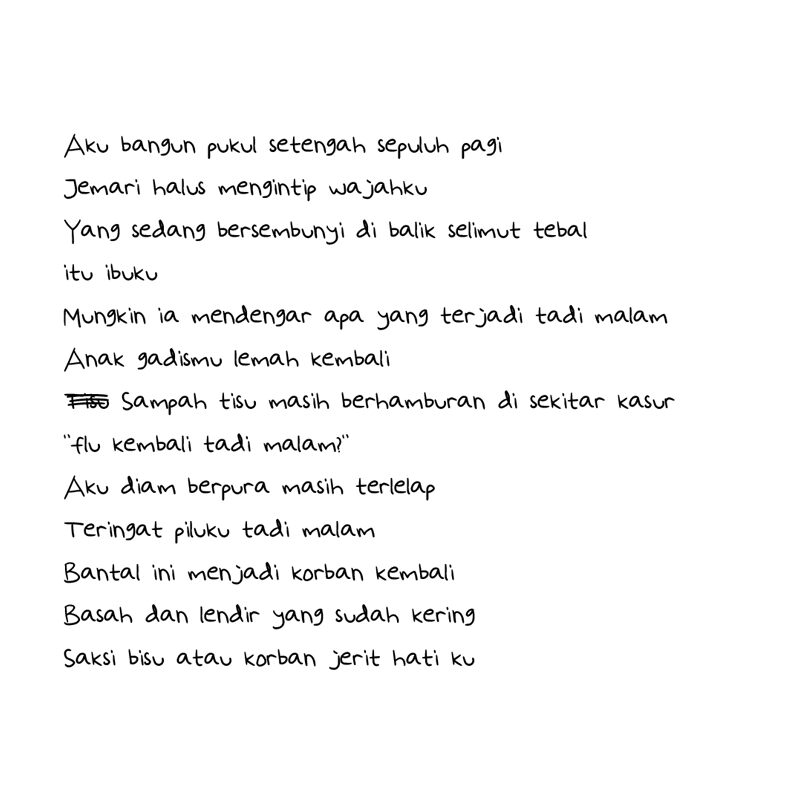 Aku bangun pukul setengah sepuluh pagi
Jemari halus mengintip wajahku
Yang sedang bersembunyi di balik selimut tebal
itu ibuku
Mungkin ia mendengar apa yang terjadi tadi malam
Anak gadismu lemah kembali
Tisu Sampah tisu masih berhamburan di sekitar kasur
"flu kembali tadi malam?"
Aku diam berpura masih terlelap
Teringat piluku tadi malam
Bantal ini menjadi korban kembali
Basah dan lendir yang sudah kering
Saksi bisu atau korban jerit hati ku